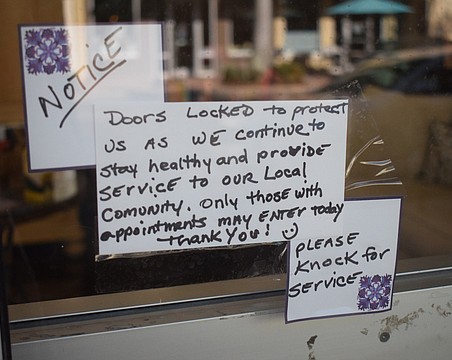 NOTICE
Doors Locked to protect
us As we continue to
stay healthy and provide
service to our Local
Comunity. Only those with
appointments may Enter today
Thank You! :)
PLEASE
Knock for
Service